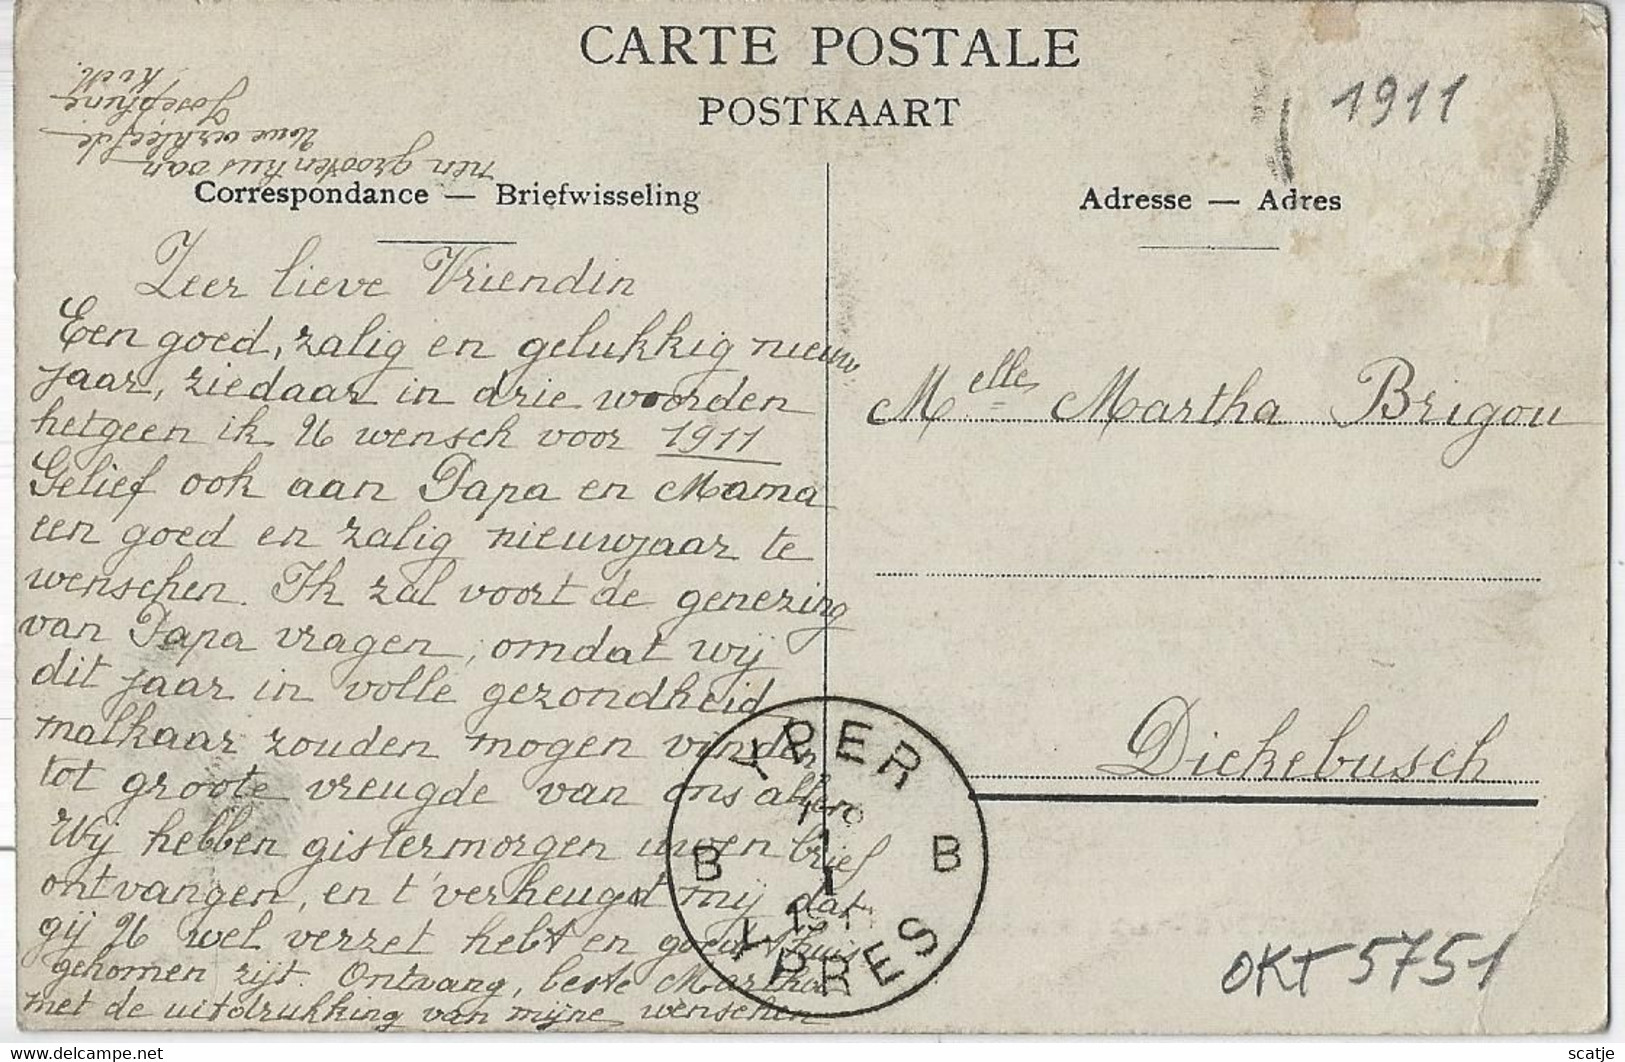 CARTE POSTALE
POSTKAART
Correspondance — Briefwisseling
Zeer lieve Vriendin
Een goed, zalig en gelukkig nieuw
jaar, ziedaar in drie woorden
hetgeen ik U wensch voor 1911
Gelief ook aan Papa en Mama
een goed en zalig nieuwjaar te
wenschen. Ik zal voort de genezing
van Papa vragen, omdat wij
dit jaar in volle gezondheid
malkaar zouden mogen vinden
tot groote vreugde van ons allen
Wij hebben gistermorgen uwen brief
ontvangen, en t'verheugt mij dat
gij U wel verzet hebt en goed t'huis
gekomen zijt. Ontvang, beste Martha
met de uitdrukking van mijne wenschen
nen grooten kus van
Uwe verkleefde
Josephine
Koek.
Adresse — Adres
1911
Melle Martha Brigou
Dickebusch
YPER
B B
YPRES
OKT 5751
https://www.delcampe.net
scatje